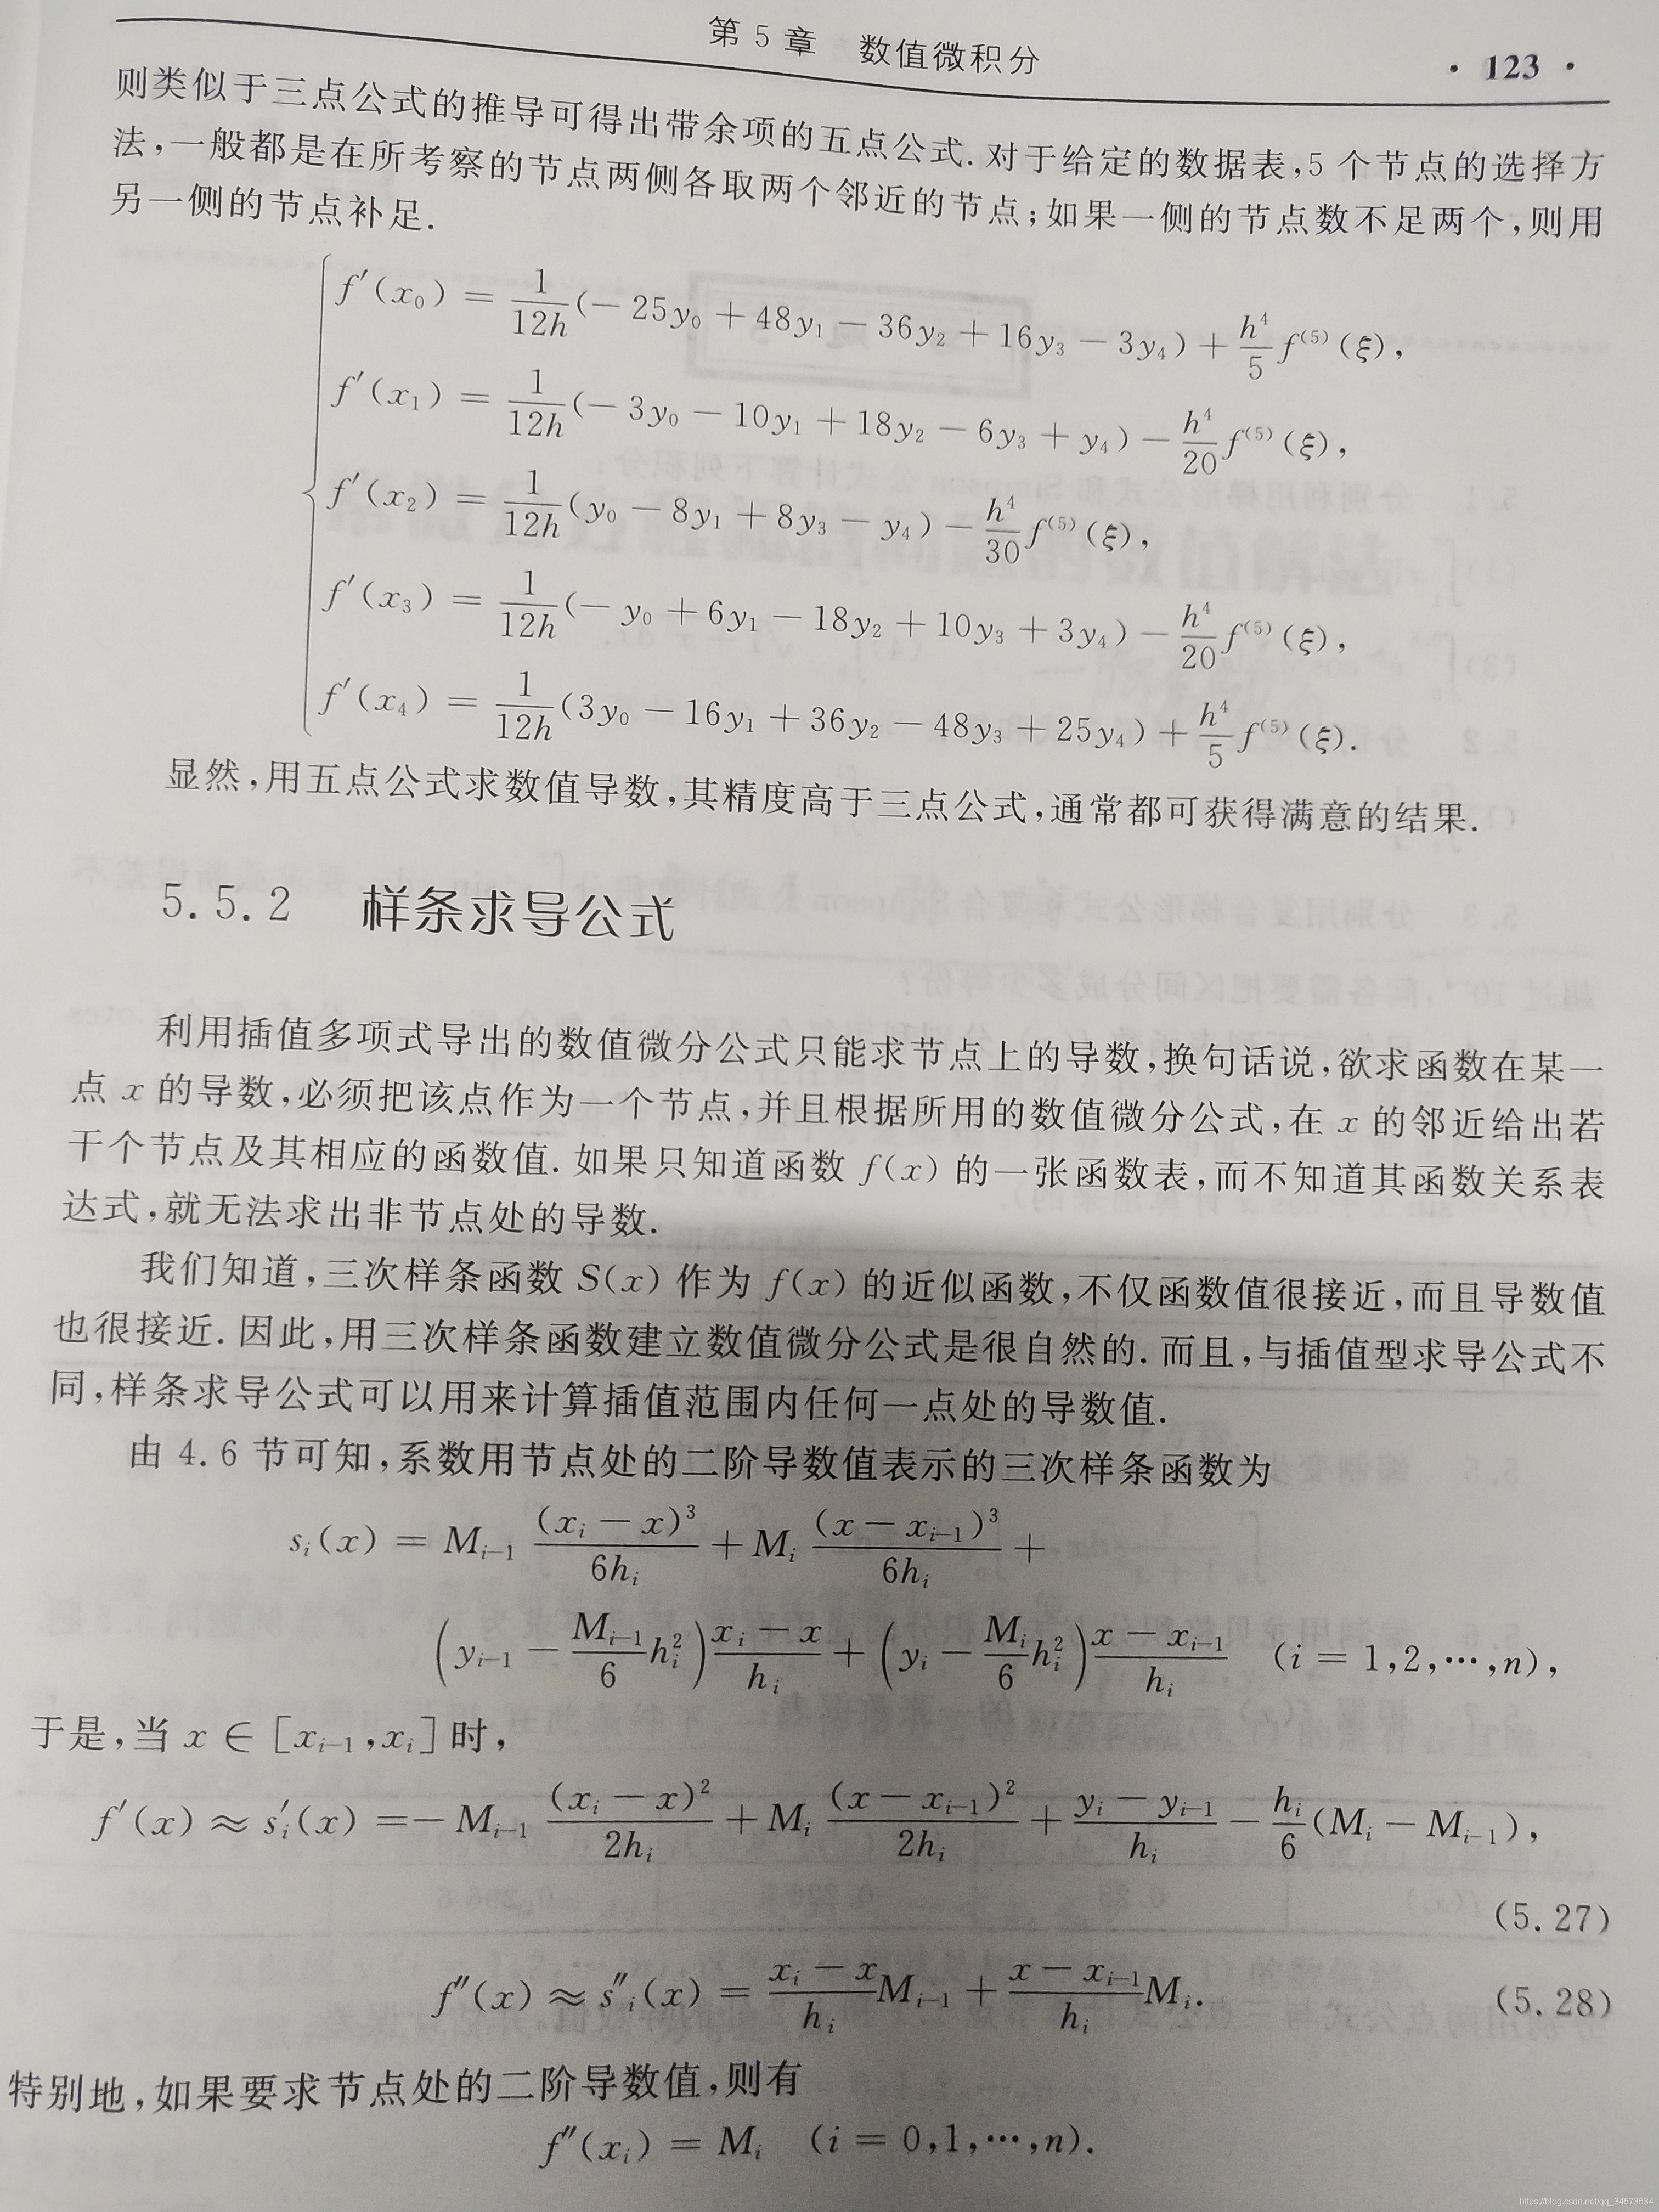 第 5 章 数值微积分 · 123 ·
则类似于三点公式的推导可得出带余项的五点公式. 对于给定的数据表,5 个节点的选择方
法,一般都是在所考察的节点两侧各取两个邻近的节点;如果一侧的节点数不足两个,则用
另一侧的节点补足.
f′(x₀) = \frac{1}{12h}(− 25y₀ + 48y₁ − 36y₂ + 16y₃ − 3y₄) + \frac{h⁴}{5} f⁽⁵⁾(ξ),
f′(x₁) = \frac{1}{12h}(− 3y₀ − 10y₁ + 18y₂ − 6y₃ + y₄) − \frac{h⁴}{20} f⁽⁵⁾(ξ),
f′(x₂) = \frac{1}{12h}(y₀ − 8y₁ + 8y₃ − y₄) − \frac{h⁴}{30} f⁽⁵⁾(ξ),
f′(x₃) = \frac{1}{12h}(− y₀ + 6y₁ − 18y₂ + 10y₃ + 3y₄) − \frac{h⁴}{20} f⁽⁵⁾(ξ),
f′(x₄) = \frac{1}{12h}(3y₀ − 16y₁ + 36y₂ − 48y₃ + 25y₄) + \frac{h⁴}{5} f⁽⁵⁾(ξ).
显然,用五点公式求数值导数,其精度高于三点公式,通常都可获得满意的结果.
5.5.2 样条求导公式
利用插值多项式导出的数值微分公式只能求节点上的导数,换句话说,欲求函数在某一
点 x 的导数,必须把该点作为一个节点,并且根据所用的数值微分公式,在 x 的邻近给出若
干个节点及其相应的函数值. 如果只知道函数 f(x) 的一张函数表,而不知道其函数关系表
达式,就无法求出非节点处的导数.
我们知道,三次样条函数 S(x) 作为 f(x) 的近似函数,不仅函数值很接近,而且导数值
也很接近. 因此,用三次样条函数建立数值微分公式是很自然的. 而且,与插值型求导公式不
同,样条求导公式可以用来计算插值范围内任何一点处的导数值.
由 4.6 节可知,系数用节点处的二阶导数值表示的三次样条函数为
sᵢ(x) = Mᵢ₋₁ \frac{(xᵢ − x)³}{6hᵢ} + Mᵢ \frac{(x − xᵢ₋₁)³}{6hᵢ} +
(yᵢ₋₁ − \frac{Mᵢ₋₁}{6}hᵢ²)\frac{xᵢ − x}{hᵢ} + (yᵢ − \frac{Mᵢ}{6}hᵢ²)\frac{x − xᵢ₋₁}{hᵢ} (i = 1,2,⋯,n),
于是,当 x ∈ [xᵢ₋₁,xᵢ] 时,
f′(x) ≈ s′ᵢ(x) =− Mᵢ₋₁ \frac{(xᵢ − x)²}{2hᵢ} + Mᵢ \frac{(x − xᵢ₋₁)²}{2hᵢ} + \frac{yᵢ − yᵢ₋₁}{hᵢ} − \frac{hᵢ}{6}(Mᵢ − Mᵢ₋₁),
(5.27)
f″(x) ≈ s″ᵢ(x) = \frac{xᵢ − x}{hᵢ}Mᵢ₋₁ + \frac{x − xᵢ₋₁}{hᵢ}Mᵢ. (5.28)
特别地,如果要求节点处的二阶导数值,则有
f″(xᵢ) = Mᵢ (i = 0,1,⋯,n).
https://blog.csdn.net/qq_34573534